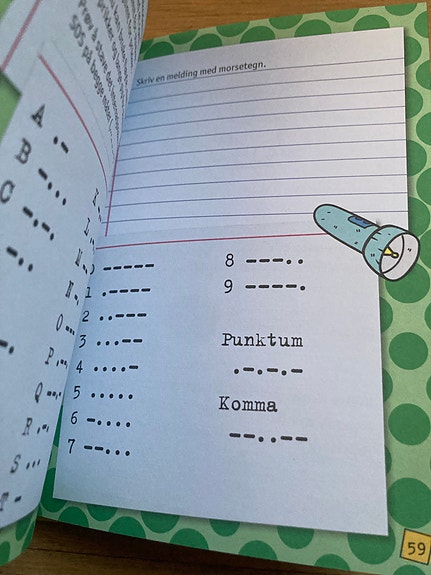 SOS på begge måter
A .-
B -...
C -.-.
-..
L
M
N
O ---
P .--.
Q --.-
R .-.
S ...
T -
Skriv en melding med morsetegn.
0 -----
1 .----
2 ..---
3 ...--
4 ....-
5 .....
6 -....
7 --...
8 ---..
9 ----.
Punktum
.-.-.-
Komma
--..--
59